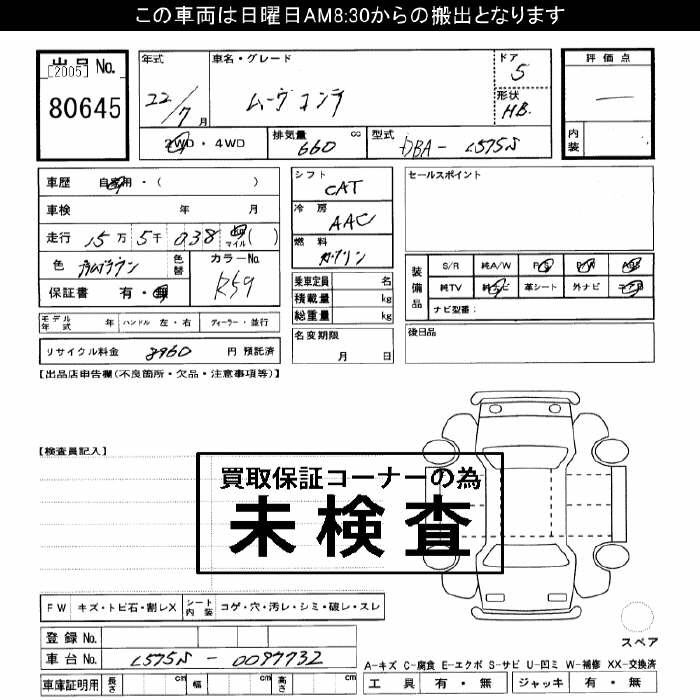 この車両は日曜日AM8:30からの搬出となります
出品No.
[2005]
80645
年式
22/7月
車名・グレード
ムーヴ コンテ
ドア
5
形状
HB
評価点
内装
2WD・4WD
排気量 660 cc
型式 DBA-L575S
車歴 自家用・( )
車検 年 月
走行 15万 5千 038 マイル( )
色
色替
カラーNo.
R59
保証書 有・無
シフト
CAT
冷房
AAC
燃料
ガソリン
乗車定員 名
積載量 kg
総重量 kg
名変期限
月 日
セールスポイント
装備品
S/R 純A/W P/S P/W A/B
純TV 純ナビ 革シート 外ナビ
ナビ型番:
後日品
モデル年式 年 ハンドル 左・右 ディーラー・並行
リサイクル料金 8960 円 預託済
【出品店申告欄(不良箇所・欠品・注意事項等)】
【検査員記入】
買取保証コーナーの為
未検査
FW キズ・トビ石・割レX シート内装 コゲ・穴・汚レ・シミ・破レ・スレ
登録No.
車台No. L575S-0097732
車庫証明用 長さ cm 幅 cm 高さ cm
スペア
A-キズ C-腐食 E-エクボ S-サビ U-凹ミ W-補修 XX-交換済
工具 有・無 ジャッキ 有・無